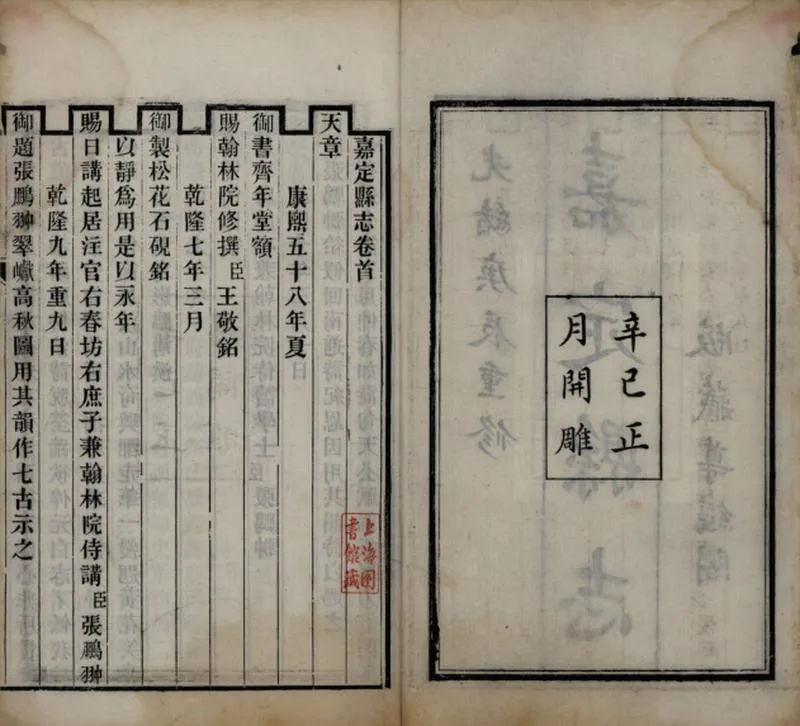 辛巳正
月開雕
嘉定縣志卷首
天章
康熙五十八年夏
御書齊年堂額
賜翰林院修撰臣王敬銘
乾隆七年三月
御製松花石硯銘
以靜為用是以永年
賜日講起居注官右春坊右庶子兼翰林院侍講臣張鵬翀
乾隆九年重九日
御題張鵬翀翠巘高秋圖用其韻作七古示之
上海圖
書館藏